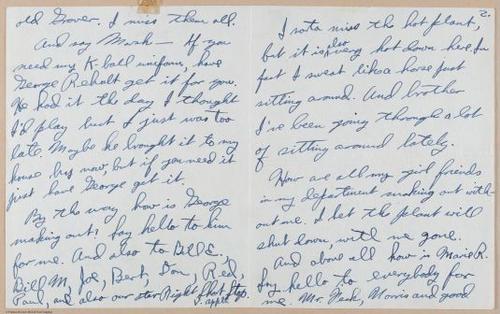 old Grover. I miss them all.
And say Mark — If you
need my K-ball uniform, have
George Reholt get it for you.
He had it the day I thought
I'd play but I just was too
late. Maybe he brought it to my
house by now, but if you need it
just have George get it.
By the way how is George
making out? Say hello to him
for me. And also to Bill E.
Bill M, Joe, Bert, Don, Red,
Paul, and also our star Right Short Stop.
2.
I sota miss the hot plant,
but it is also very hot down here. In
fact I sweat like a horse just
sitting around. And brother
I've been going through a lot
of sitting around lately.
How are all my girl friends
in my department making out with-
out me. I bet the plant will
shut down, with me gone.
And above all how is Marie R.
Say hello to everybody for
me. Mr. Morris and good